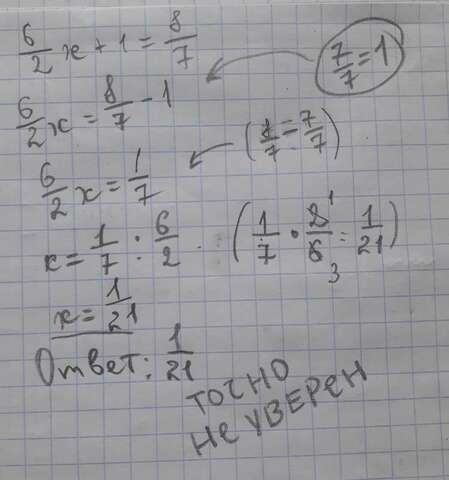 6/2 x + 1 = 8/7
7/7 = 1
6/2 x = 8/7 - 1
(1 = 7/7)
6/2 x = 1/7
x = 1/7 : 6/2 (1/7 · 2/6 = 1/21)
1
3
x = 1/21
Ответ: 1/21
ТОЧНО
НЕ УВЕРЕН